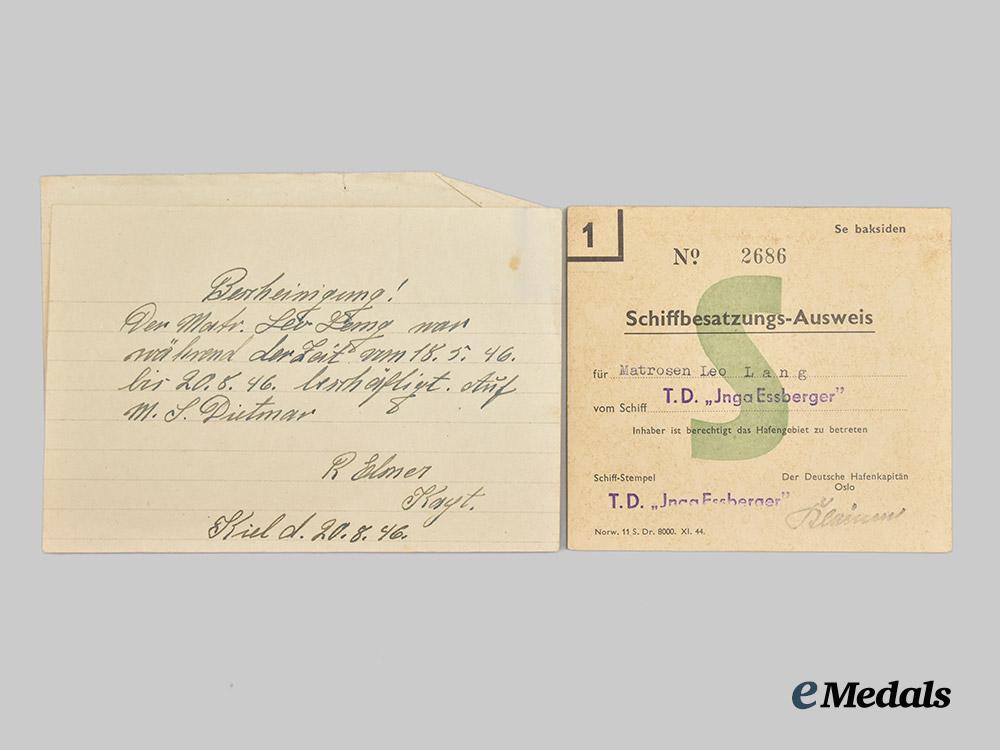 Bescheinigung!
Der Matr. Leo Lang war
während der Zeit vom 18. 5. 46.
bis 20. 8. 46. beschäftigt. Auf
M. S. Dietmar
R Elmer
Kapt.
Kiel d. 20. 8. 46.
1
Se baksiden
Nº 2686
S
Schiffbesatzungs-Ausweis
für Matrosen Leo Lang
vom Schiff T.D. „Jnga Essberger"
Inhaber ist berechtigt das Hafengebiet zu betreten
Schiff-Stempel
Der Deutsche Hafenkapitän
Oslo
T.D. „Jnga Essberger"
Norw. 11 S. Dr. 8000. XI. 44.
eMedals